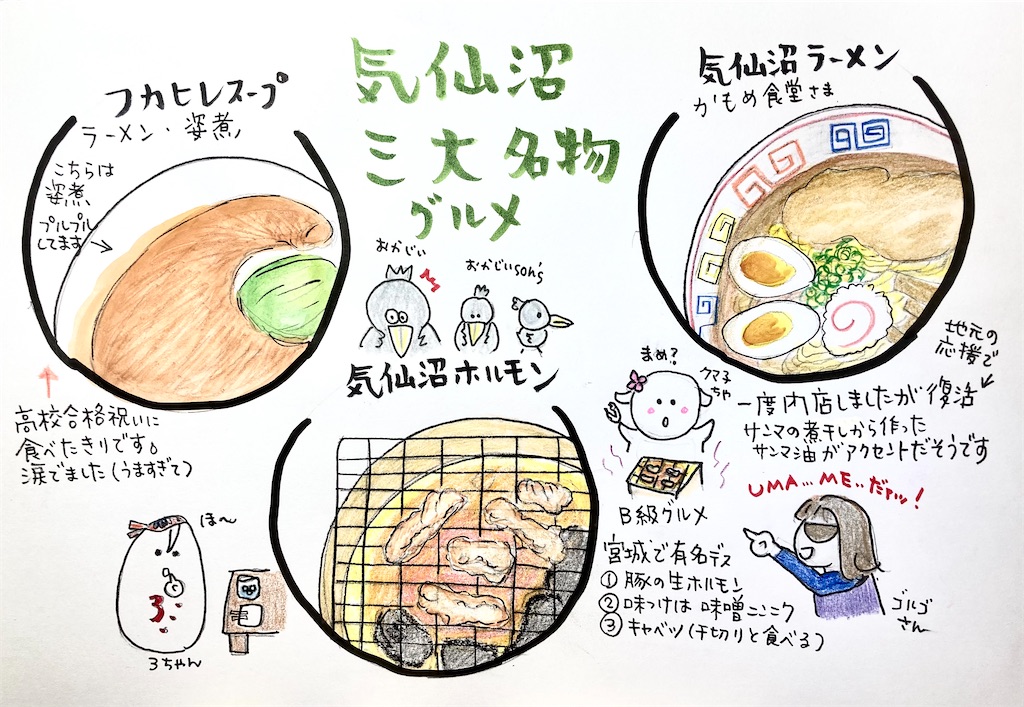 気仙沼
三大名物
グルメ
フカヒレスープ
ラーメン・姿煮
こちらは
姿煮
プルプル
してます
高校合格祝いに
食べたきりです。
涙でました(うますぎて)
おかじい
おかじいson's
気仙沼ラーメン
かもめ食堂さま
地元の
応援で
一度内店しましたが復活
サンマの煮干しから作った
サンマ油がアクセントだそうです
気仙沼ホルモン
まめ?
クマ子
ちゃ
B級グルメ
宮城で有名デス
① 豚の生ホルモン
② 味つけは 味噌ニンニク
③ キャベツ(千切りと食べる)
UMA...ME..だァッ!
ゴルゴ
さん
ほ〜
3ちゃん